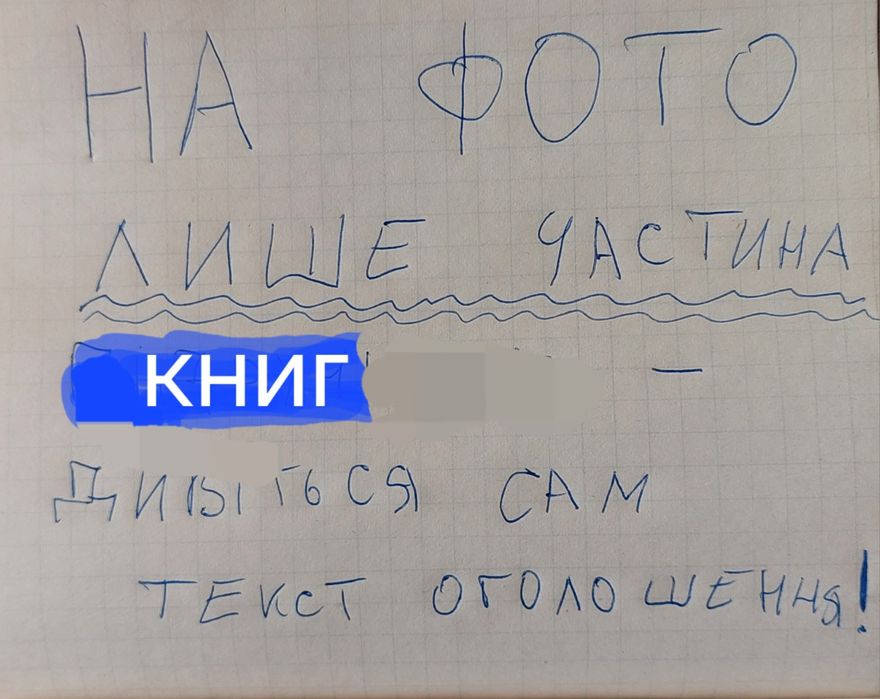 НА ФОТО
ЛИШЕ ЧАСТИНА
КНИГ —
ДИВІТЬСЯ САМ
ТЕКСТ ОГОЛОШЕННЯ!